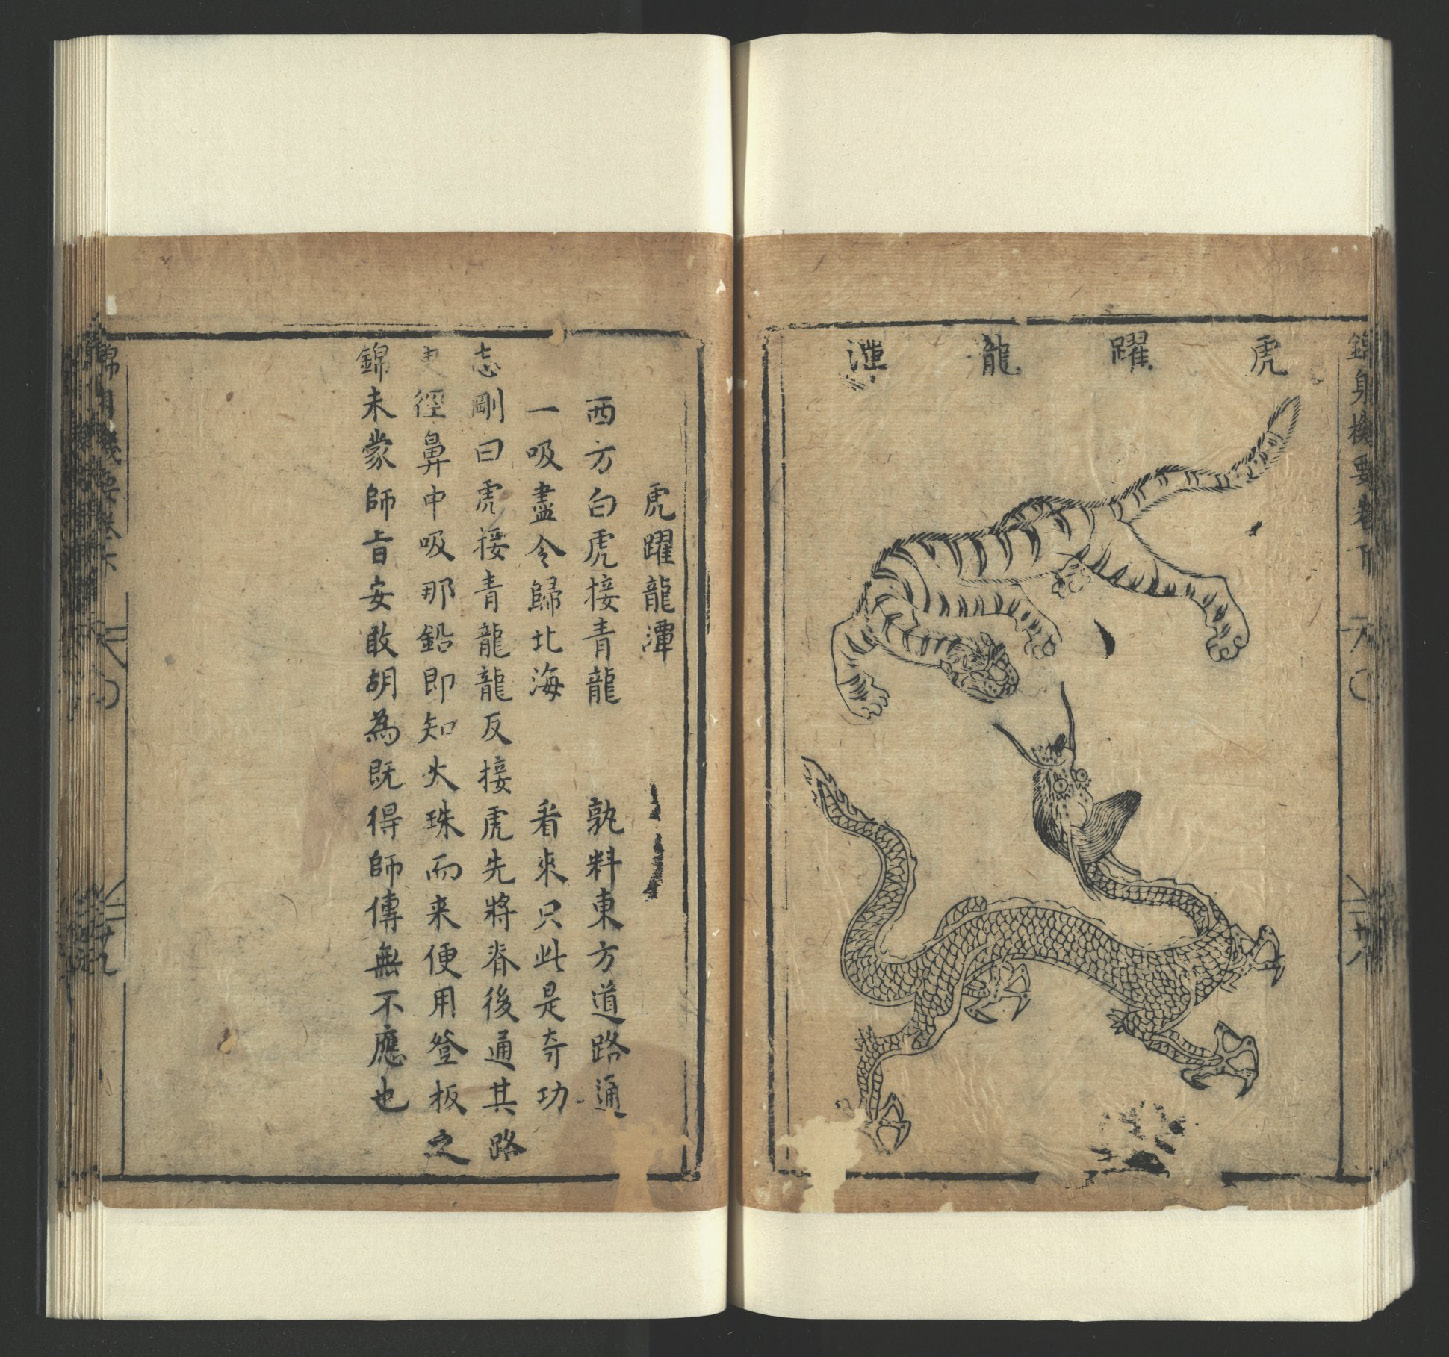 虎躍龍潭
虎躍龍潭
西方白虎接青龍　孰料東方道路通
一吸盡令歸北海　看來只此是奇功
志剛曰虎接青龍龍反接虎先將脊後通其路
徑鼻中吸那鉛即知火珠而来便用登板之
錦未蒙師旨安敢胡為既得師傳無不應也